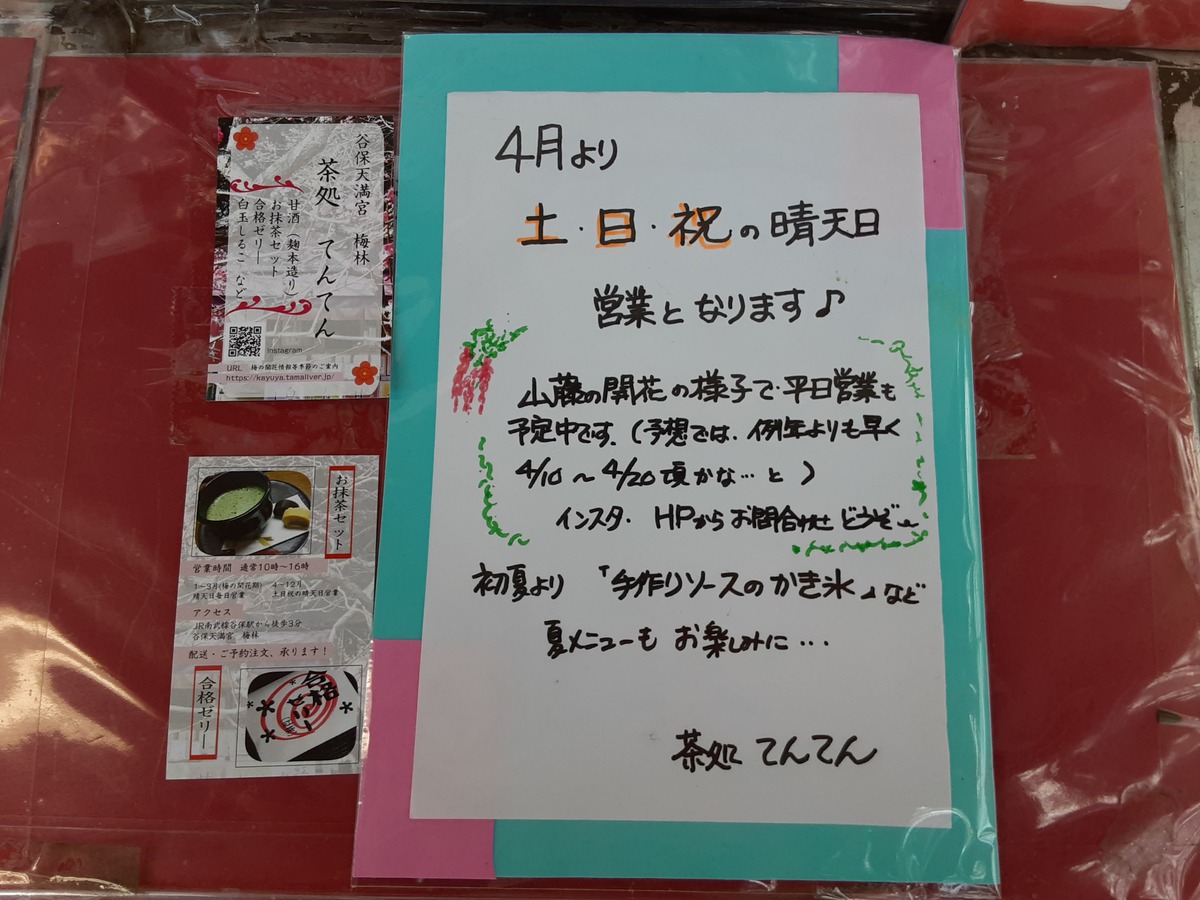 谷保天満宮 梅林
茶処 てんてん
甘酒(麹本造り)
お抹茶セット
合格ゼリー
白玉しるこ など
instagram
URL 梅の開花情報等季節のご案内
https://kayuya.tamaliver.jp/
お抹茶セット
営業時間 通常10時〜16時
1〜3月(梅の開花期) 4〜12月
晴天日毎日営業 土日祝の晴天日営業
アクセス
JR南武線谷保駅から徒歩3分
谷保天満宮 梅林
配送・ご予約注文、承ります!
合格ゼリー
合格ゼリー
4月より
土・日・祝の晴天日
営業となります♪
山藤の開花の様子で平日営業も
予定中です。(予想では、例年よりも早く
4/10〜4/20頃かな…と)
インスタ・HPからお問合わせどうぞ
初夏より「手作りソースのかき氷」など
夏メニューもお楽しみに…
茶処 てんてん